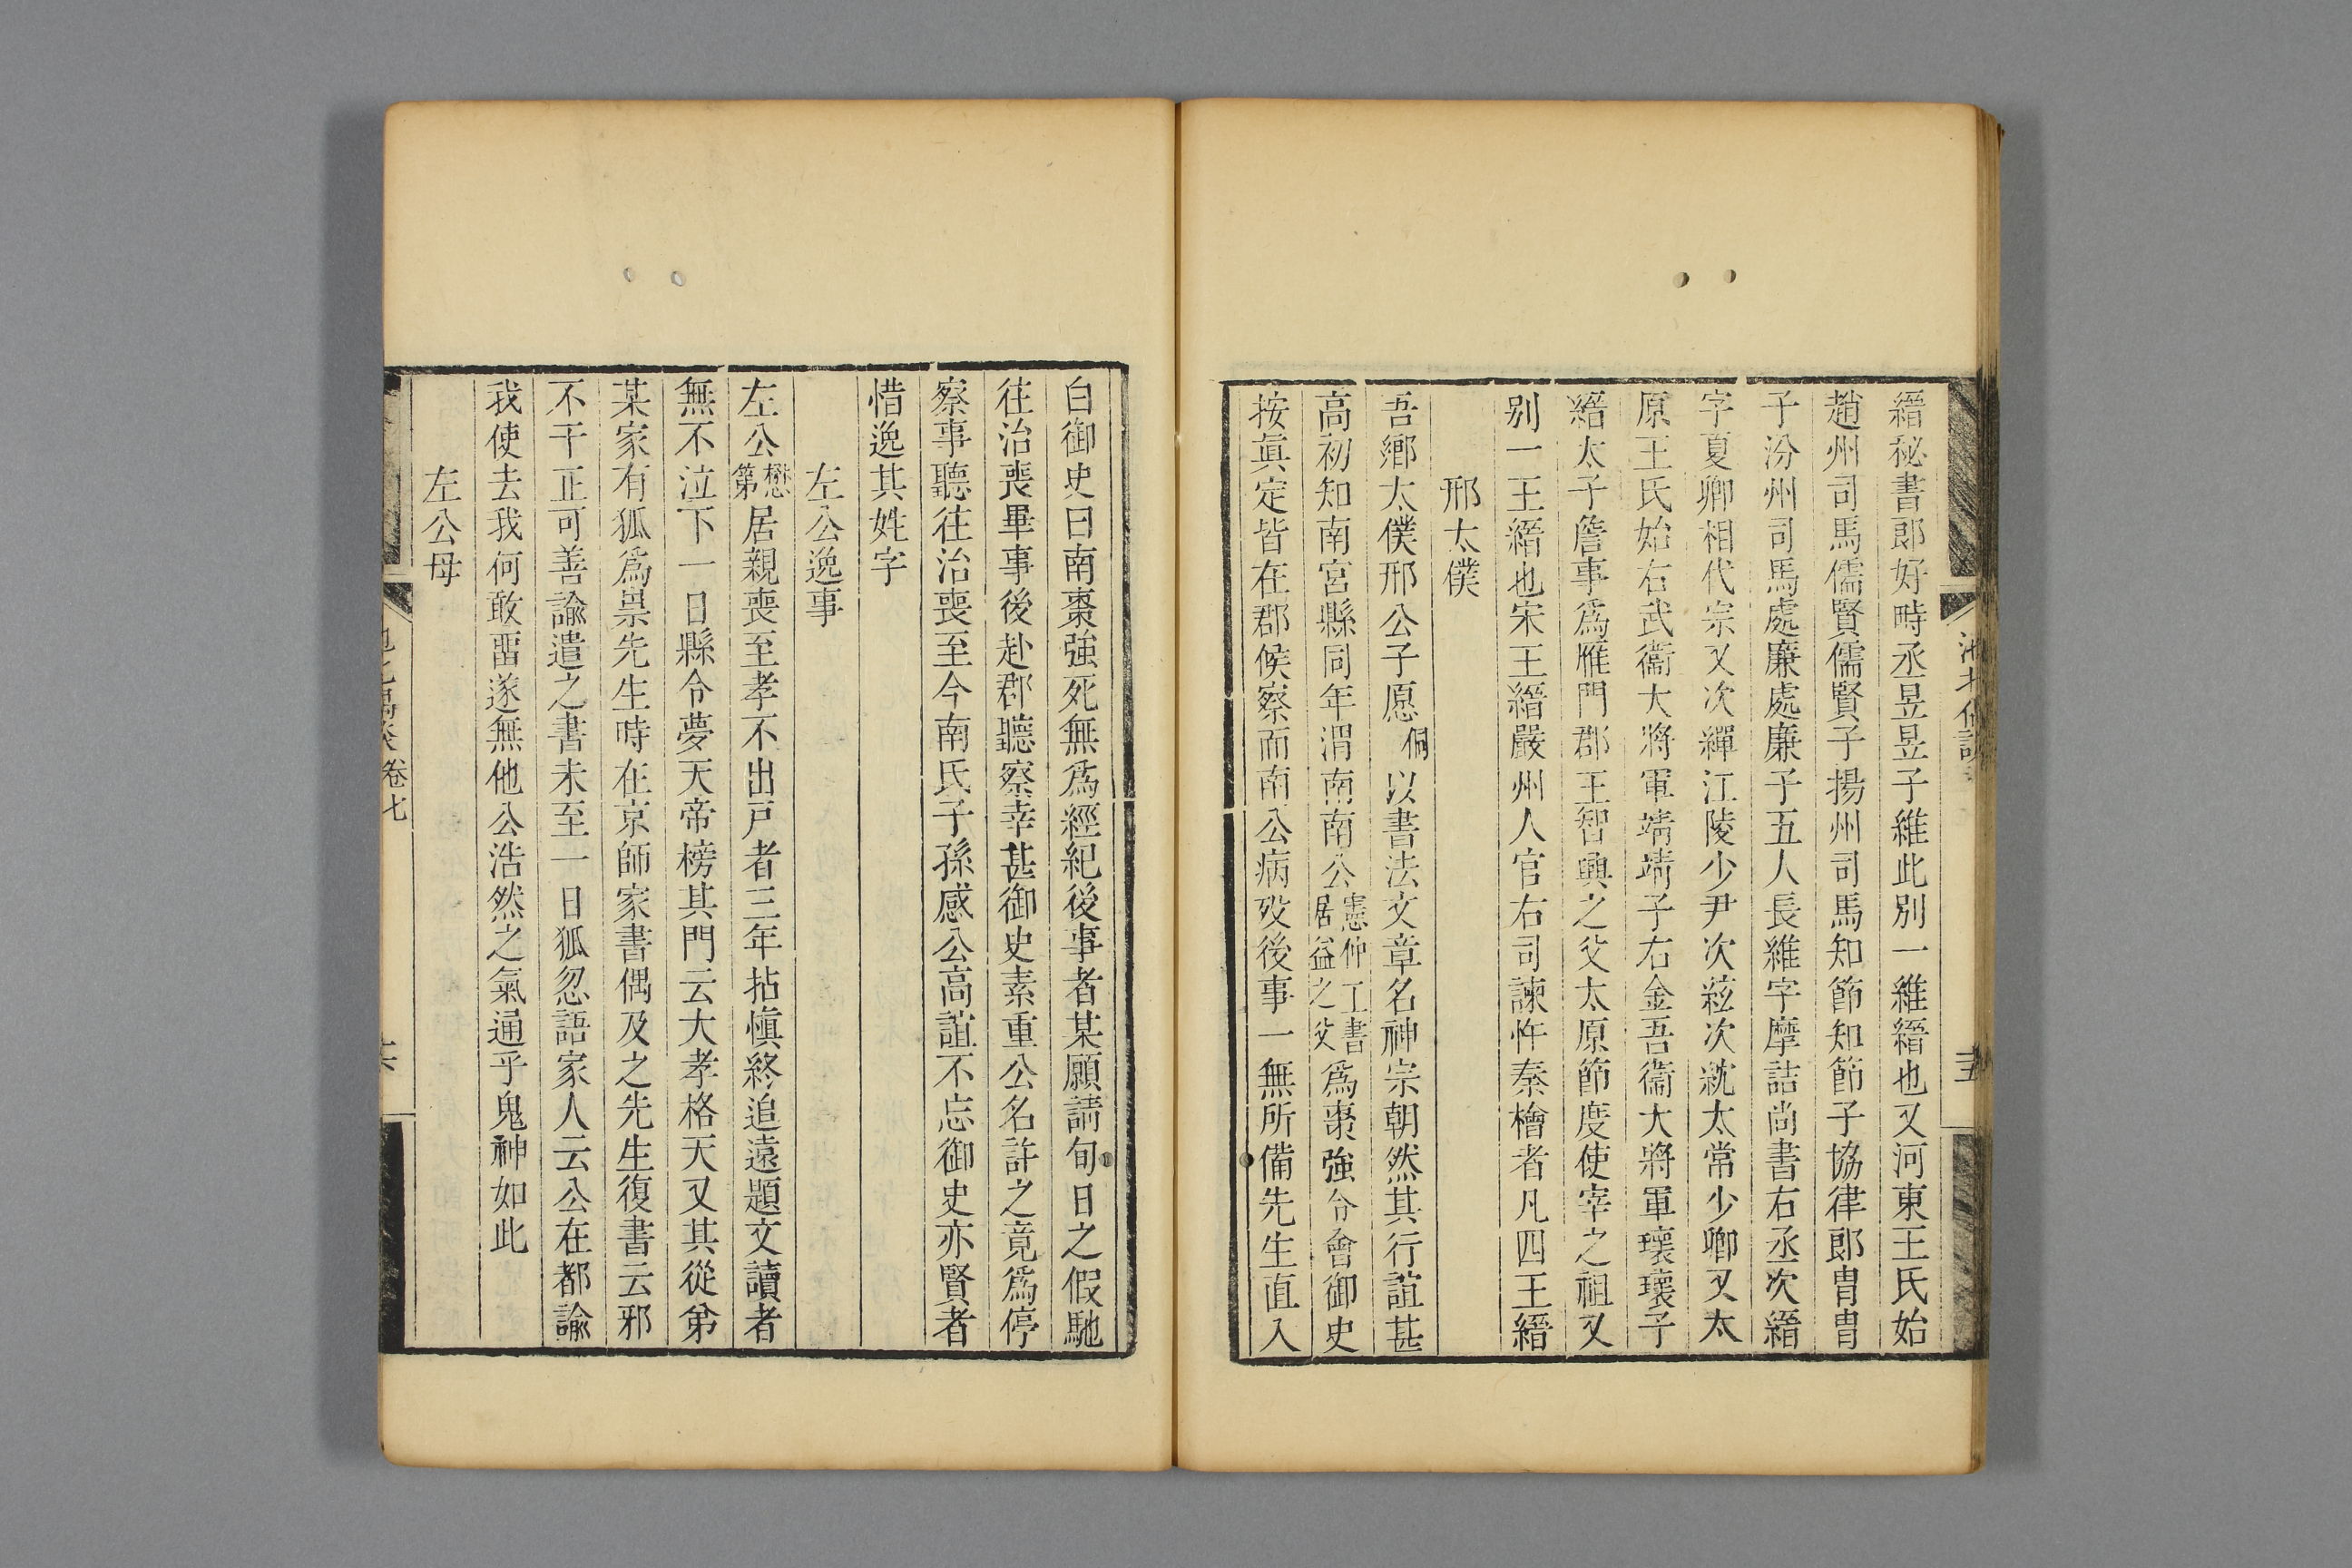 縉秘書郎好畤丞昱昱子維此別一維縉也又河東王氏始
趙州司馬儒賢儒賢子揚州司馬知節知節子協律郎胄胄
子汾州司馬處廉處廉子五人長維字摩詰尚書右丞次縉
字夏卿相代宗又次繟江陵少尹次紘次紞太常少卿又太
原王氏始右武衞大將軍靖靖子右金吾衞大將軍瓌瓌子
縉太子詹事爲雁門郡王智興之父太原節度使宰之祖又
別一王縉也宋王縉嚴州人官右司諫忤秦檜者凡四王縉
邢太僕
吾鄉太僕邢公子愿侗以書法文章名神宗朝然其行誼甚
高初知南宮縣同年渭南南公憲仲工書居益之父爲棗強令會御史
按眞定皆在郡候察而南公病歿後事一無所備先生直入
白御史曰南棗強死無爲經紀後事者某願請旬日之假馳
往治喪畢事後赴郡聽察幸甚御史素重公名許之竟爲停
察事聽往治喪至今南氏子孫感公高誼不忘御史亦賢者
惜逸其姓字
左公逸事
左公懋第居親喪至孝不出戸者三年拈愼終追遠題文讀者
無不泣下一日縣令夢天帝榜其門云大孝格天又其從弟
某家有狐爲祟先生時在京師家書偶及之先生復書云邪
不干正可善諭遣之書未至一日狐忽語家人云公在都諭
我使去我何敢畱遂無他公浩然之氣通乎鬼神如此
左公母
卷七